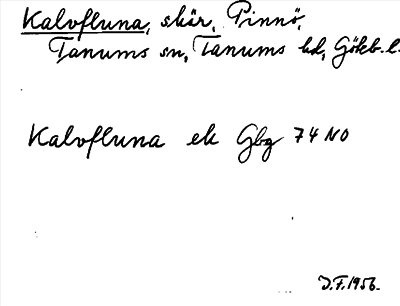 Kalvfluna, skär, Pinnö,
Tanums sn, Tanums hd, Gökb. l.
Kalvfluna ek Gbg 74 NO
D.F. 1956.